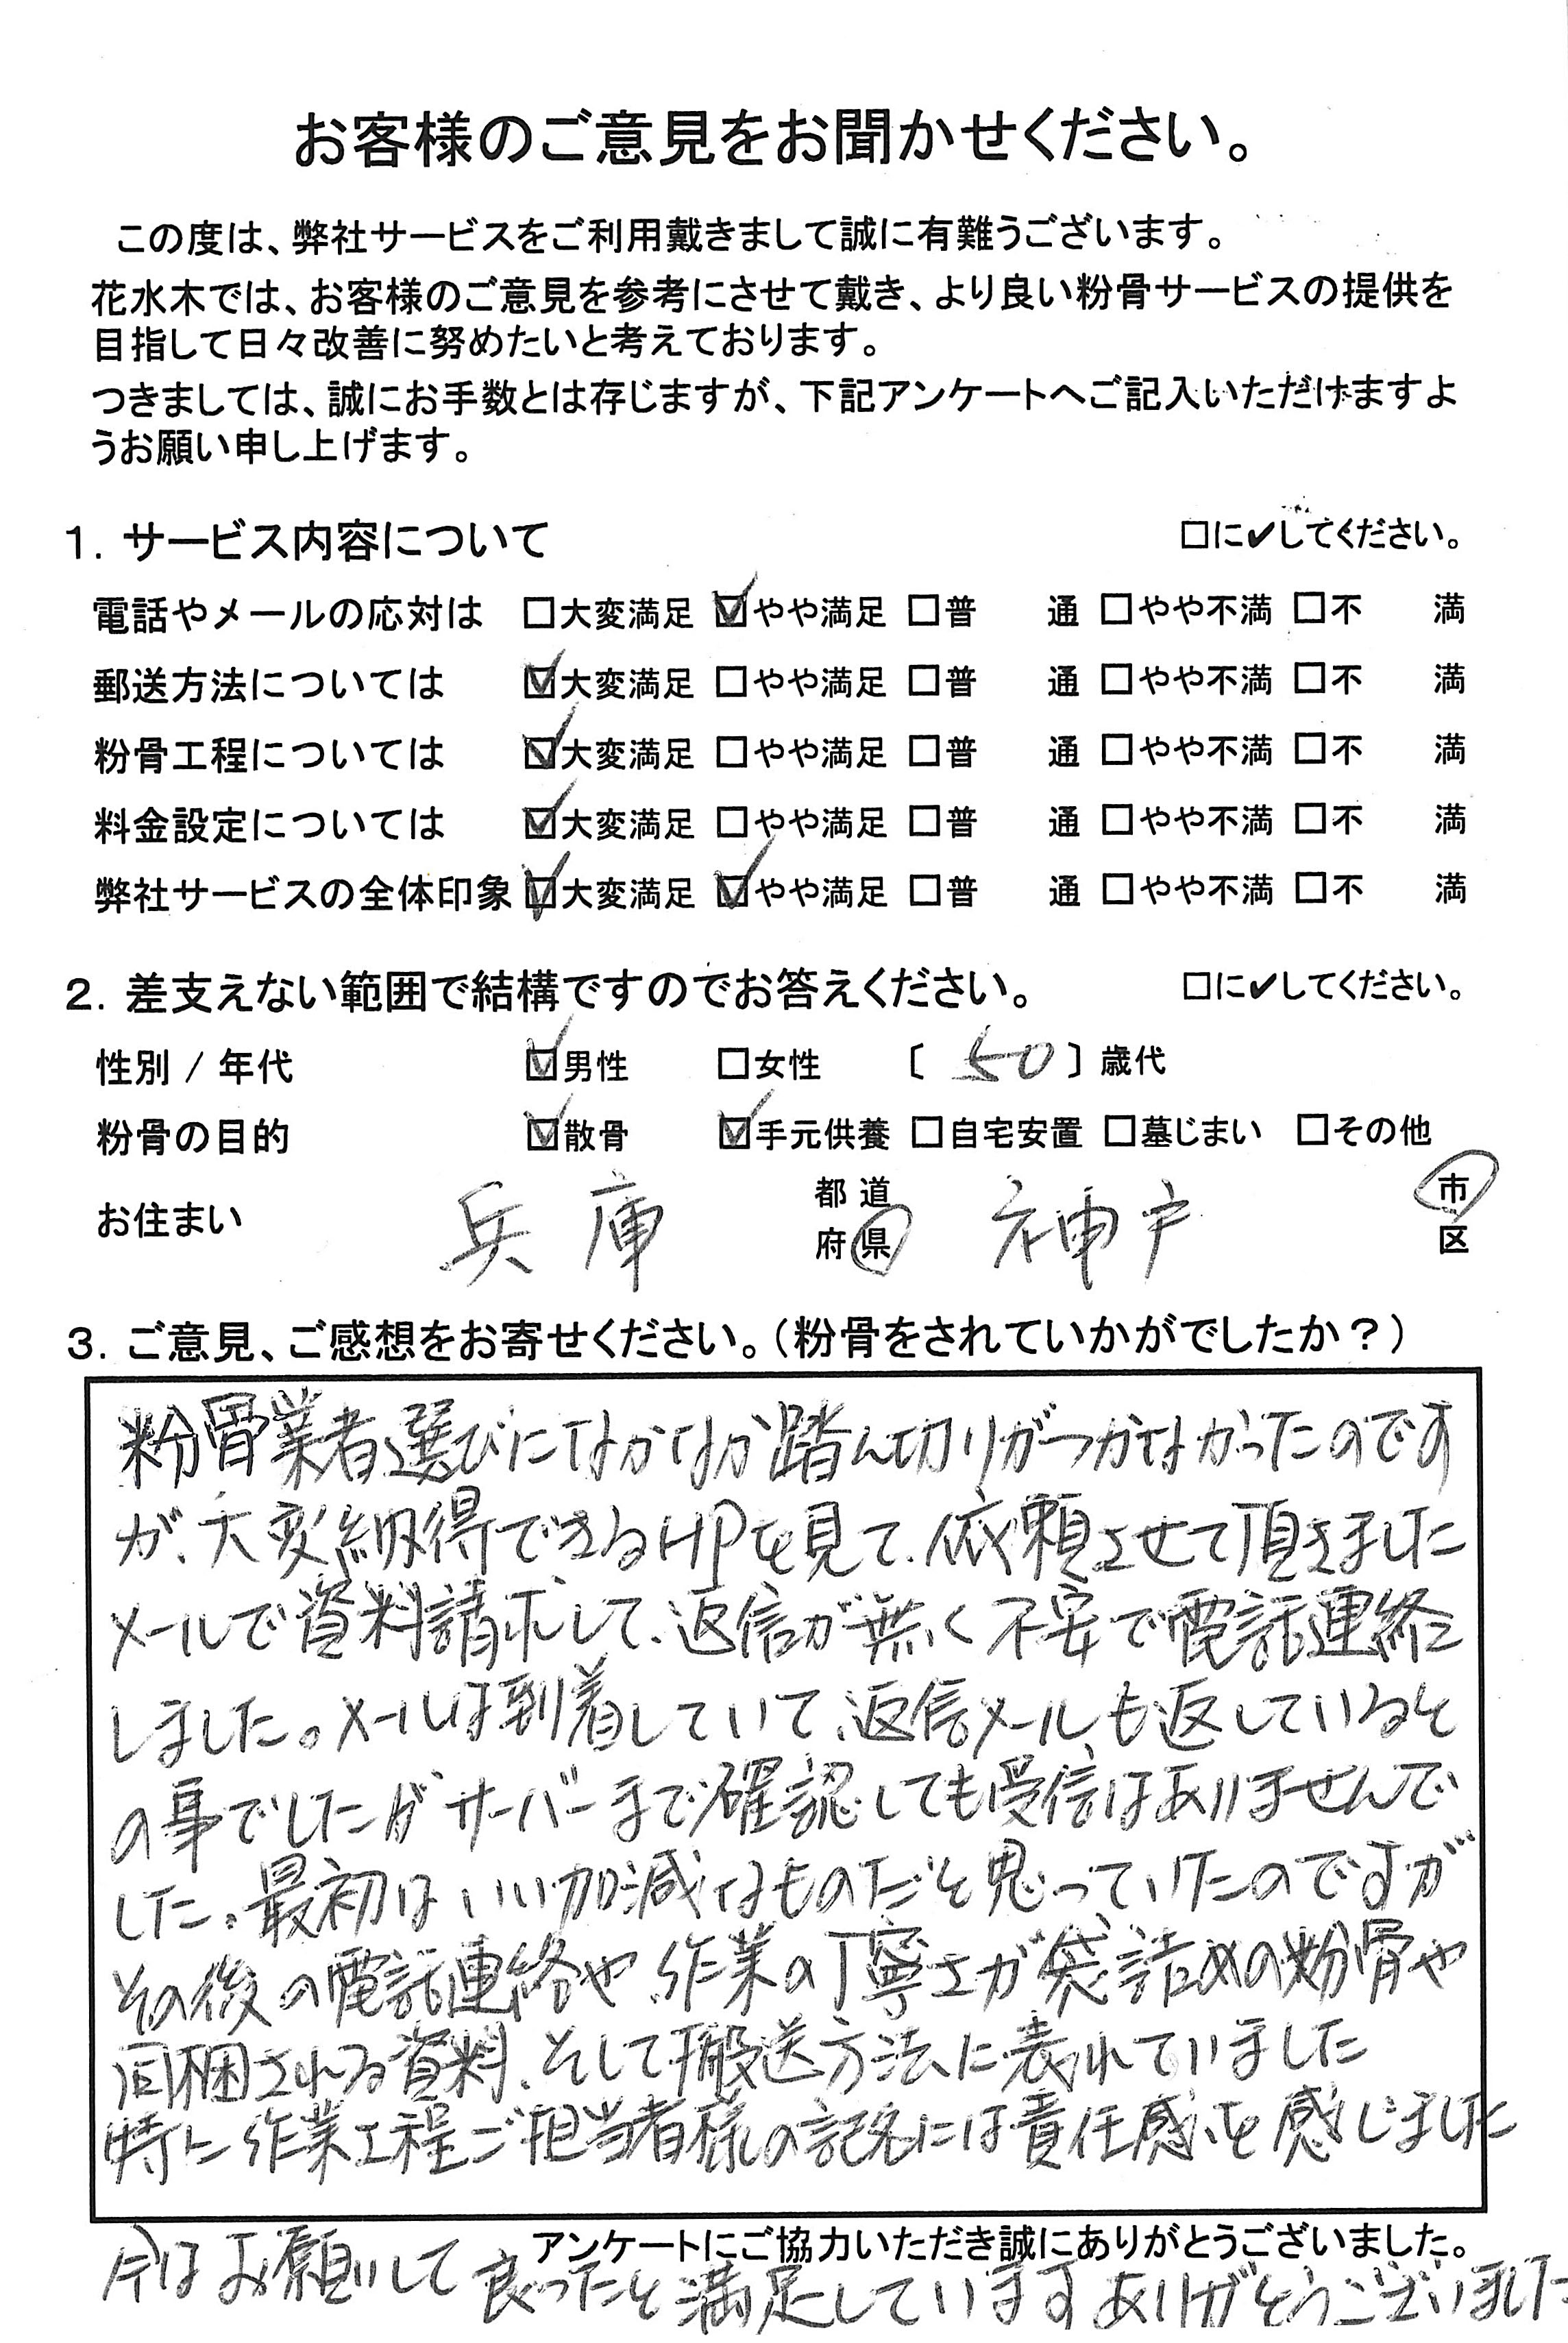 お客様のご意見をお聞かせください。
この度は、弊社サービスをご利用戴きまして誠に有難うございます。
花水木では、お客様のご意見を参考にさせて戴き、より良い粉骨サービスの提供を
目指して日々改善に努めたいと考えております。
つきましては、誠にお手数とは存じますが、下記アンケートへご記入いただけますよ
うお願い申し上げます。
1. サービス内容について □に✔してください。
電話やメールの応対は □大変満足 ☑やや満足 □普 通 □やや不満 □不 満
郵送方法については ☑大変満足 □やや満足 □普 通 □やや不満 □不 満
粉骨工程については ☑大変満足 □やや満足 □普 通 □やや不満 □不 満
料金設定については ☑大変満足 □やや満足 □普 通 □やや不満 □不 満
弊社サービスの全体印象 ☑大変満足 ☑やや満足 □普 通 □やや不満 □不 満
2. 差支えない範囲で結構ですのでお答えください。 □に✔してください。
性別 / 年代 ☑男性 □女性 〔 50 〕歳代
粉骨の目的 ☑散骨 ☑手元供養 □自宅安置 □墓じまい □その他
お住まい 兵庫 都道府県 神戸 市区
3. ご意見、ご感想をお寄せください。(粉骨をされていかがでしたか?)
粉骨業者選びになかなか踏ん切りがつかなかったのです
が、大変納得できるHPを見て、依頼させて頂きました
メールで資料請求して、返信が無く不安で電話連絡
しました。メールは到着していて、返信メールも返しているそ
の事でしたがサーバーまで確認しても受信はありませんで
した。最初はいい加減なものだと思っていたのですが
その後の電話連絡や、作業の丁寧さが袋詰めの粉骨や
同梱される資料、そして搬送方法に表れていました
特に作業工程ご担当者様の記名には責任感を感じました
アンケートにご協力いただき誠にありがとうございました。
今はお願いして良ったと満足していますありがとうございました